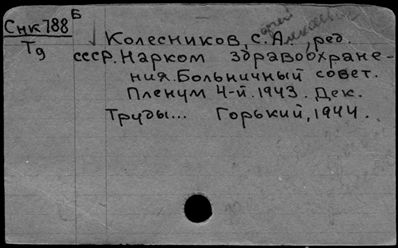 Снк788 Б
Т9
Колесников, С.А., ред.
СССР. Нарком здравоохране-
ния. Больничный совет.
Пленум 4-й. 1943. Дек.
Труды... Горький, 1944.